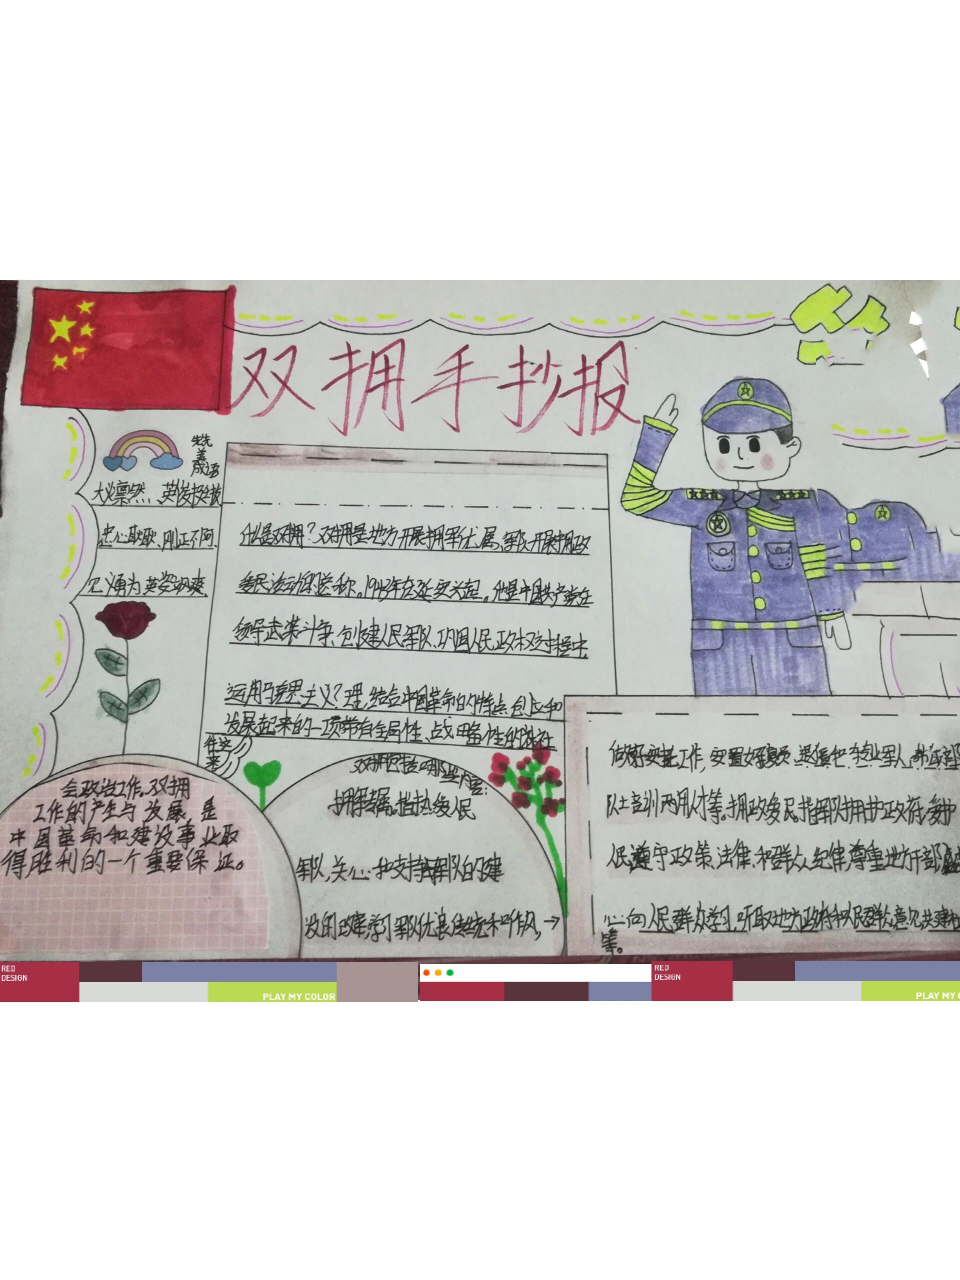 双拥手抄报
赞美
成语
大义凛然、英俊挺拔
忠心耿耿、刚正不阿、
见义勇为 英姿飒爽
什么是双拥?双拥是地方开展拥军优属,军队开展拥政
爱民运动的简称。1943年在延安兴起。他是中国共产党在
领导武装斗争、创建人民军队、巩固人民政权过程中
运用马克思主义?理,结合中国革命的特点创立和
发展起来的一项带有全局性、战略性的
社会政治工作。双拥
工作的产生与发展,是
中国革命和建设事业取
得胜利的一个重要保证。
双拥包括哪些内容:
拥军优属。指热爱人民
军队,关心和支持军队的建
设的改革学习军队优良传统和作风,→
做好安抚工作,安置好复员、退伍和专业军人,
队土培训两用人才等。拥政爱民指军队拥护政府、爱护
人民遵守政策、法律、和群众纪律尊重地方干部
心向人民群众学习,听取地方政府和人民群众意见,共建
等。
RED
DESIGN
PLAY MY COLOR
RED
DESIGN
PLAY MY